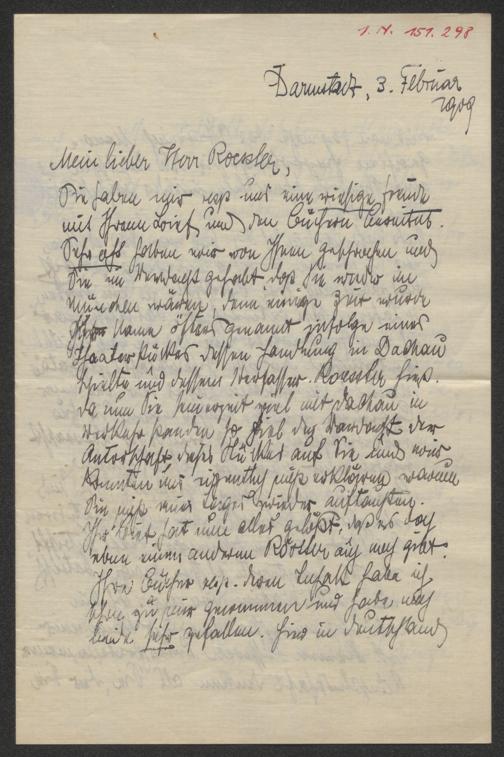 I. N. 151.298
Darmstadt, 3. Februar
1909
Mein lieber Herr Roessler,
Sie haben mir resp. uns eine riesige Freude
mit Ihrem Brief und den Büchern
Sehr oft haben wir von Ihnen gesprochen und
Sie im Verdacht gehabt daß Sie wieder in
München wären, denn einige Zeit wurde
Ihr Name öfters genannt infolge eines
Theaterstückes dessen Handlung in Dachau
spielte und dessen Verfasser Roessler hieß.
Da nun Sie seinerzeit viel mit Dachau in
Verkehr standen so fiel der Verdacht der
Autorschaft dieses Stückes auf Sie und wir
konnten uns eigentlich nicht erklären warum
Sie nicht wieder auftauchten.
Ihr Brief hat nun alles gelöst, daß es doch
eben einen anderen Rössler auch noch gibt.
Ihre Bücher resp. deren Inhalt habe ich
schon zu mir genommen und habe
beide sehr gefallen. Hier in Deutschland